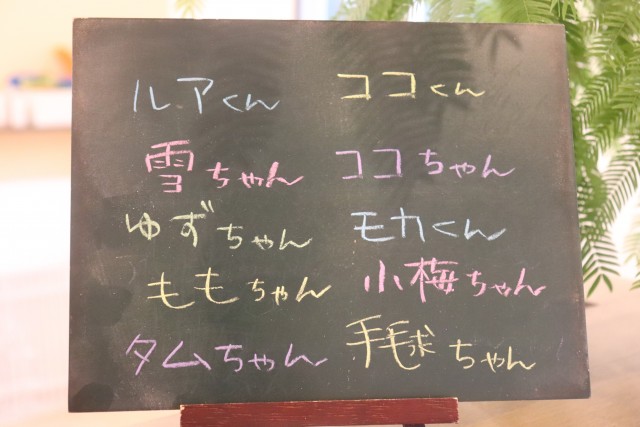 ルアくん ココくん
雪ちゃん ココちゃん
ゆずちゃん モカくん
ももちゃん 小梅ちゃん
タムちゃん 手毬ちゃん